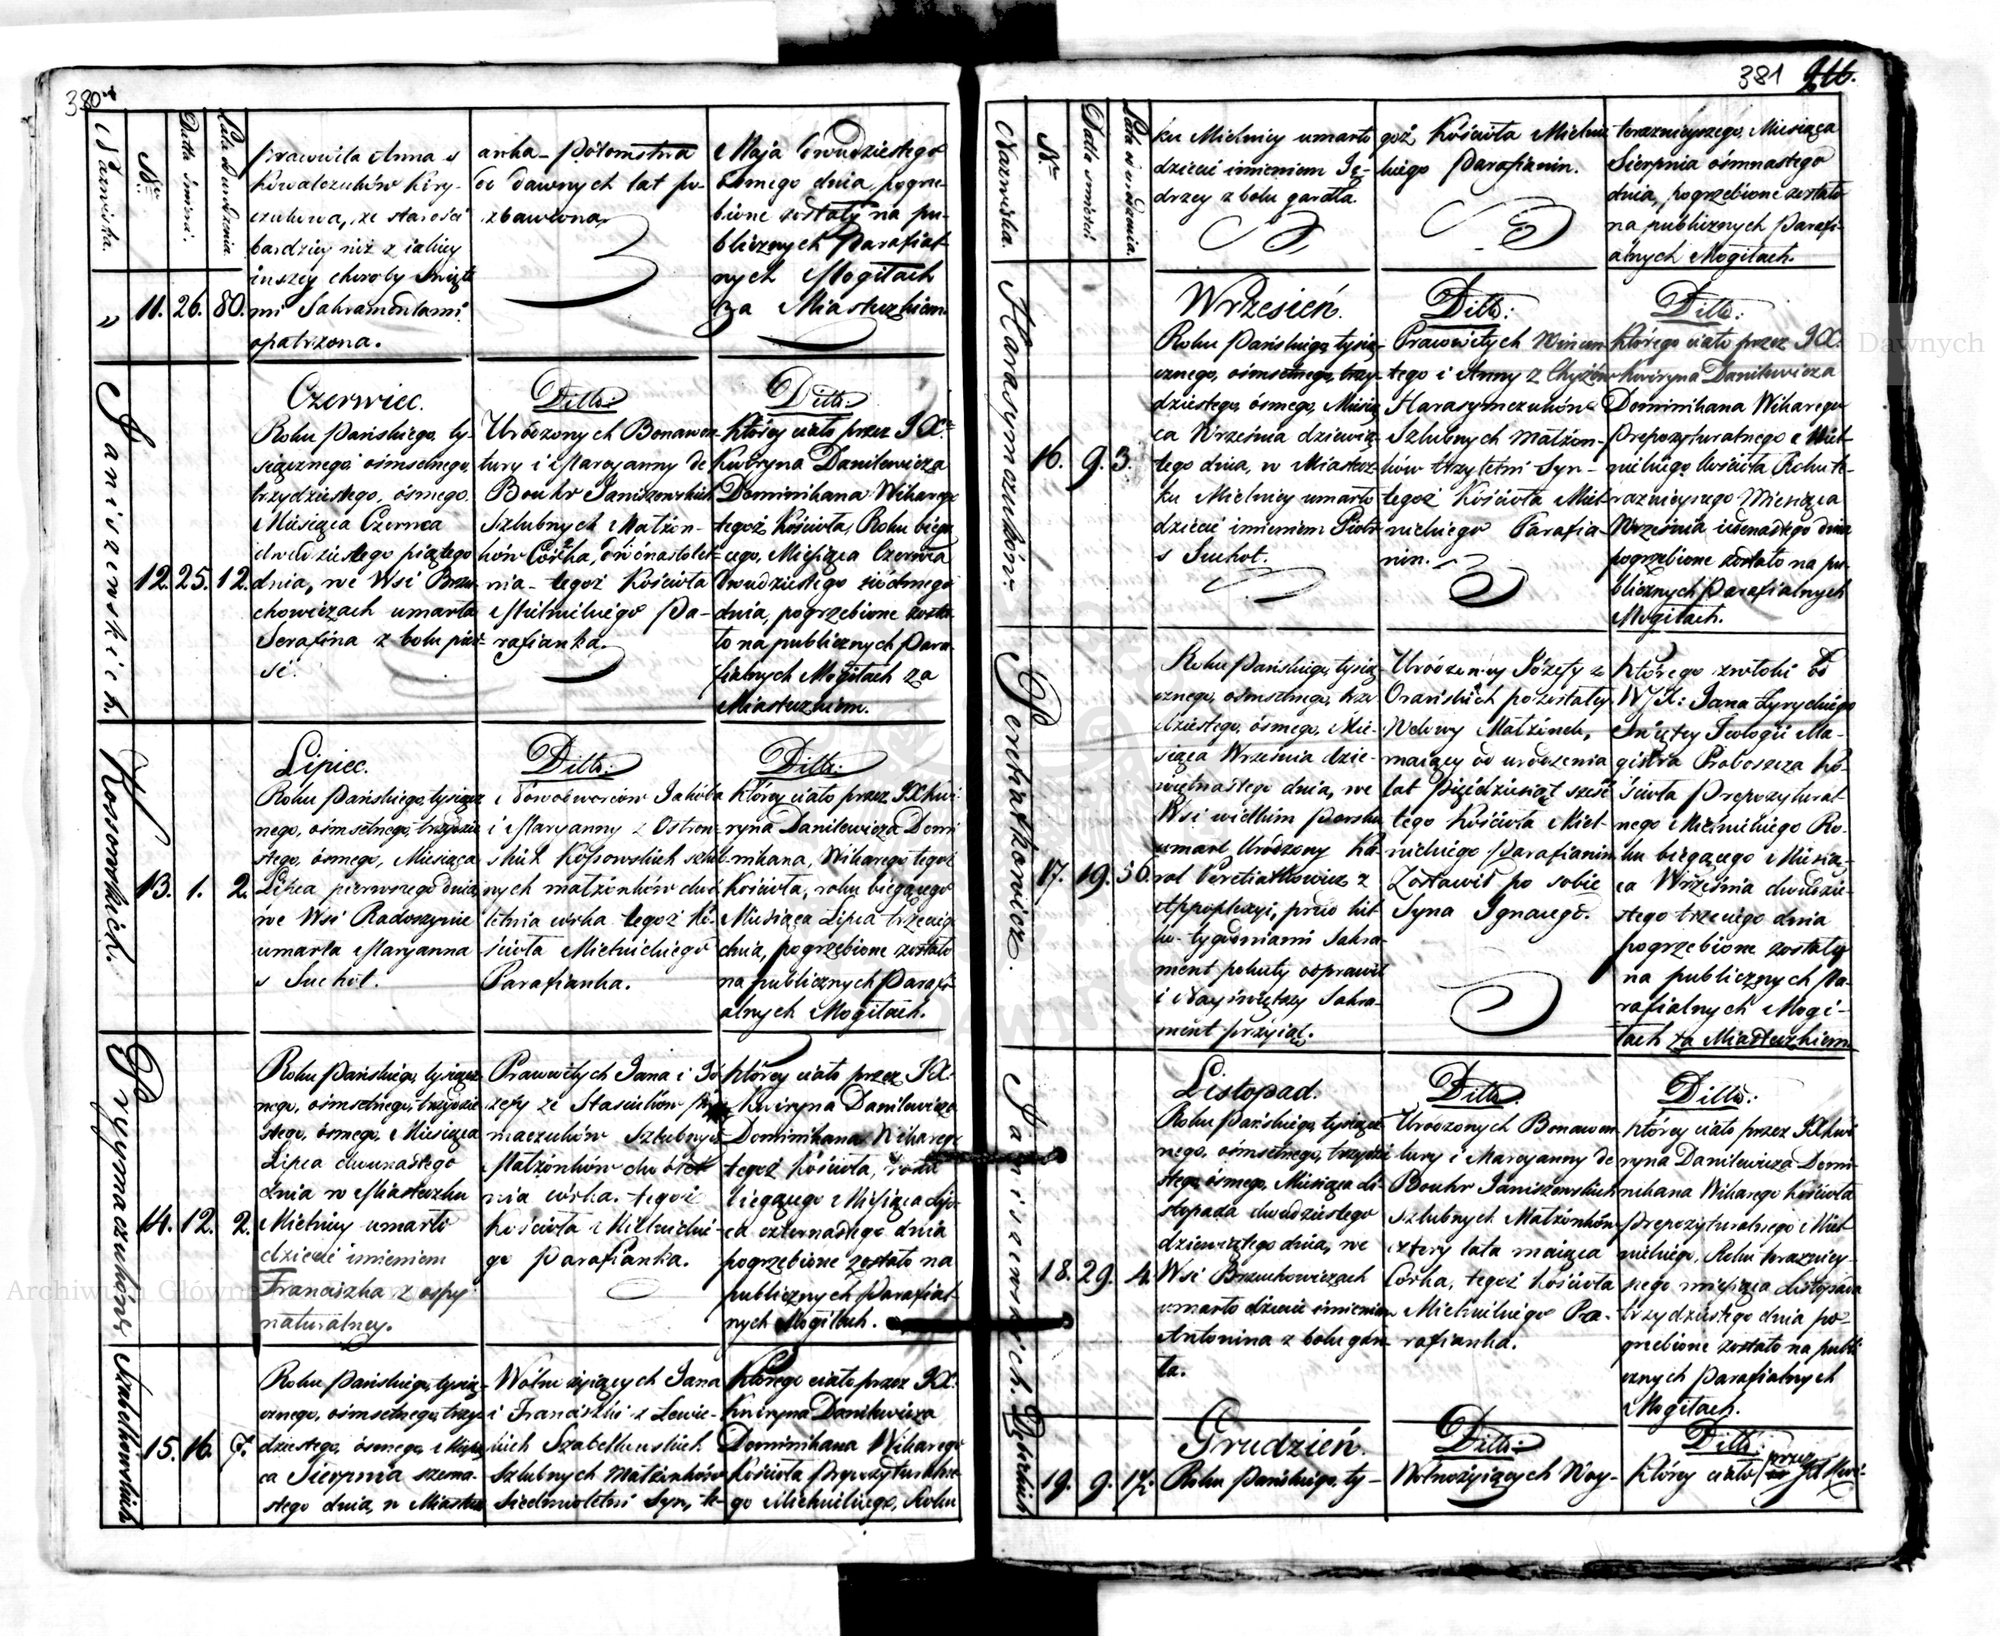 380
Nazwiska.
Nro
Datta śmierci.
Lata od urodzenia.
prawowita Anna s
Kowalczuków Kiry-
czukowa, ze starości
bardziey niż z iakiey
inszey choroby Święte
mi Sakramentami
opatrzona.
anka Potomstwa
od dawnych lat po-
zbawiona.
Maja Dwudziestego
osmego dnia, pogrze-
bione zostały na pu-
blicznych Parafial-
nych Mogiłach
za Miasteczkiem.
11. 26. 80.
Janiszewskich
12. 25. 12.
Czerwiec.
Roku Pańskiego, ty-
siącznego ośmsetnego,
trzydziestego, ósmego.
Miesiąca Czerwca
dwudziestego piątego
dnia, we Wsi Brzu-
chowiczach umarła
Serafina z bolu pier-
si.
Ditto:
Urodzonych Bonawen-
tury i Maryanny de
Bouhr Janiszewskich
Szlubnych Małżon-
ków Córka, dwónastolet-
nia tegoż Kościoła
Mielnickiego Pa-
rafianka.
Ditto:
Ktorey ciało przez JX.
Kwiryna Danilewicza
Dominikana Wikarego
tegoż Kościoła, Roku bieżą-
cego, Miesiąca Czerwca
Dwudziestego siódmego
dnia, pogrzebione zosta-
ło na publicznych Para-
fialnych Mogiłach za
Miasteczkiem.
Kossowskich.
13. 1. 2.
Lipiec.
Roku Pańskiego, tysiącz-
nego, ośmsetnego, trzydzie-
stego, ósmego, Miesiąca
Lipca pierwszego dnia,
we Wsi Radoszynie
umarła Maryanna
s Suchot.
Ditto:
Jakóba
i Maryanny z Ostrow-
skich Kossowskich szlub-
nych małżonków dwó-
letnia córka tegoż Ko-
ścioła Mielnickiego
Parafianka.
Ditto:
Ktorey ciało przez JX Kwi-
ryna Danilewicza Domi-
nikana, Wikarego tegoż
Kościoła, roku bieżącego
Miesiąca Lipca trzeciego
dnia, pogrzebione zostało
na publicznych Parafi-
alnych Mogiłach.
14. 12. 2.
Roku Pańskiego, tysiącz-
nego, ośmsetnego, trzydzie-
stego, ósmego, Miesiąca
Lipca dwunastego
dnia w Miasteczku
Mielnicy umarło
dziecie imieniem
Franciszka z ospy
naturalney.
Prawowitych Jana i Jó-
zefy ze Stasiuków
Szlubnych
Małżonków dwóletn-
nia córka. tegoż
Kościoła Mielnickie-
go Parafianka.
Ktorey ciało przez JX.
Kwiryna Danilewicza
Dominikana Wikarego
tegoż Kościoła, roku
bieżącego Miesiąca Lip-
ca czternastego dnia
pogrzebione zostało na
publicznych Parafial-
nych Mogiłach.
Szabełkowskich
15. 16. 7.
Roku Pańskiego, tysią-
cznego, ośmsetnego, trzy-
dziestego, ósmego, Miesią-
ca Sierpnia szesna-
stego dnia, w Miastecz-
Wólno żyiących Jana
i Franciszki z Lewic-
kich Szabełkowskich
Szlubnych Małżonków
Siedmioletni Syn, te-
Którego ciało przez JX.
Kwiryna Danilewicza
Dominikana Wikarego
Kościoła Prepozyturalne-
go Mielnickiego, Roku
381 216.
Nazwiska.
Nro
Datta śmierci
Lata od urodzenia.
ku Mielnicy umarło
dziecie imieniem Ję-
drzey z bolu gardła.
goż Kościoła Mielnic-
kiego Parafianin.
teraznieyszego, Miesiąca
Sierpnia ośmnastego
dnia, pogrzebione zostało
na publicznych Parafi-
alnych Mogiłach.
Harasymczuków.
16. 9. 3.
Wrzesień.
Roku Pańskiego, tysią-
cznego, ośmsetnego, trzy-
dziestego, ósmego, Miesią-
ca Września dziewią-
tego dnia, w Miastecz-
ku Mielnicy umarło
dziecie imieniem Piotr
s Suchot.
Ditto:
Prawowitych Wincen-
tego i Anny z Chyżów
Harasymczuków
Szlubnych małżon-
ków trzyletni Syn-
tegoż Kościoła Miel-
nickiego Parafia-
nin.
Ditto:
Którego ciało przez JX.
Kwiryna Danilewicza
Dominikana Wikarego
Prepozyturalnego Miel-
nickiego Kościoła Roku te-
raznieyszego Miesiąca
Września iedenastego dnia
pogrzebione zostało na pu-
blicznych Parafialnych
Mogiłach.
Peretiatkowicz.
17. 19. 56.
Roku Pańskiego, tysią-
cznego, ośmsetnego, trzy-
dziestego, ósmego, Mie-
siąca Września dzie-
więtnastego dnia, we
Wsi wielkim Porsku
umarł Urodzony Ka-
rol Peretiatkowicz z
Appoplexyi, przed kil-
ko-tygodniami Sakra-
ment pokuty odprawił
i Nayświętszy Sakra-
ment przyiął.
Urodzoney Józefy z
Orańskich pozostałey
Wdowy Małżonek,
maiący od urodzenia
lat pięćdziesiąt sześć
tego Kościoła Miel-
nickiego Parafianin
Zostawił po sobie
Syna Ignacego.
Którego zwłoki od
WJX: Jana Łyryckiego
Świętey Teologii Ma-
gistra Proboszcza Ko-
ścioła Prepozytural-
nego Mielnickiego Ro-
ku bieżącego Miesią-
ca Września dwudzie-
stego trzeciego dnia
pogrzebione zostały
na publicznych Pa-
rafialnych Mogi-
łach za Miasteczkiem.
Janiszewskich.
18. 29. 4.
Listopad.
Roku Pańskiego, tysiącz-
nego, ośmsetnego, trzydzie-
stego, ósmego, Miesiąca Li-
stopada dwudziestego
dziewiątego dnia, we
Wsi Brzuchowiczach
umarło dziecie imieniem
Antonina z bolu gard-
ła.
Ditto:
Urodzonych Bonawen-
tury i Maryanny de
Bouhr Janiszewskich
Szlubnych Małżonków
cztery lata maiąca
Córka, tegoż Kościoła
Mielnickiego Pa-
rafianka.
Ditto:
Ktorey ciało przez JX Kwi-
ryna Danilewicza Domi-
nikana Wikarego Kościoła
Prepozyturalnego Miel-
nickiego, Roku teraznie y-
szego miesiąca Listopada
trzydziestego dnia po-
grzebione zostało na publi-
cznych Parafialnych
Mogiłach.
19. 9. 17.
Grudzień.
Roku Pańskiego, ty-
Ditto:
Wolnożyiących Woy-
Ditto:
Którey ciało przez JX Kwi-